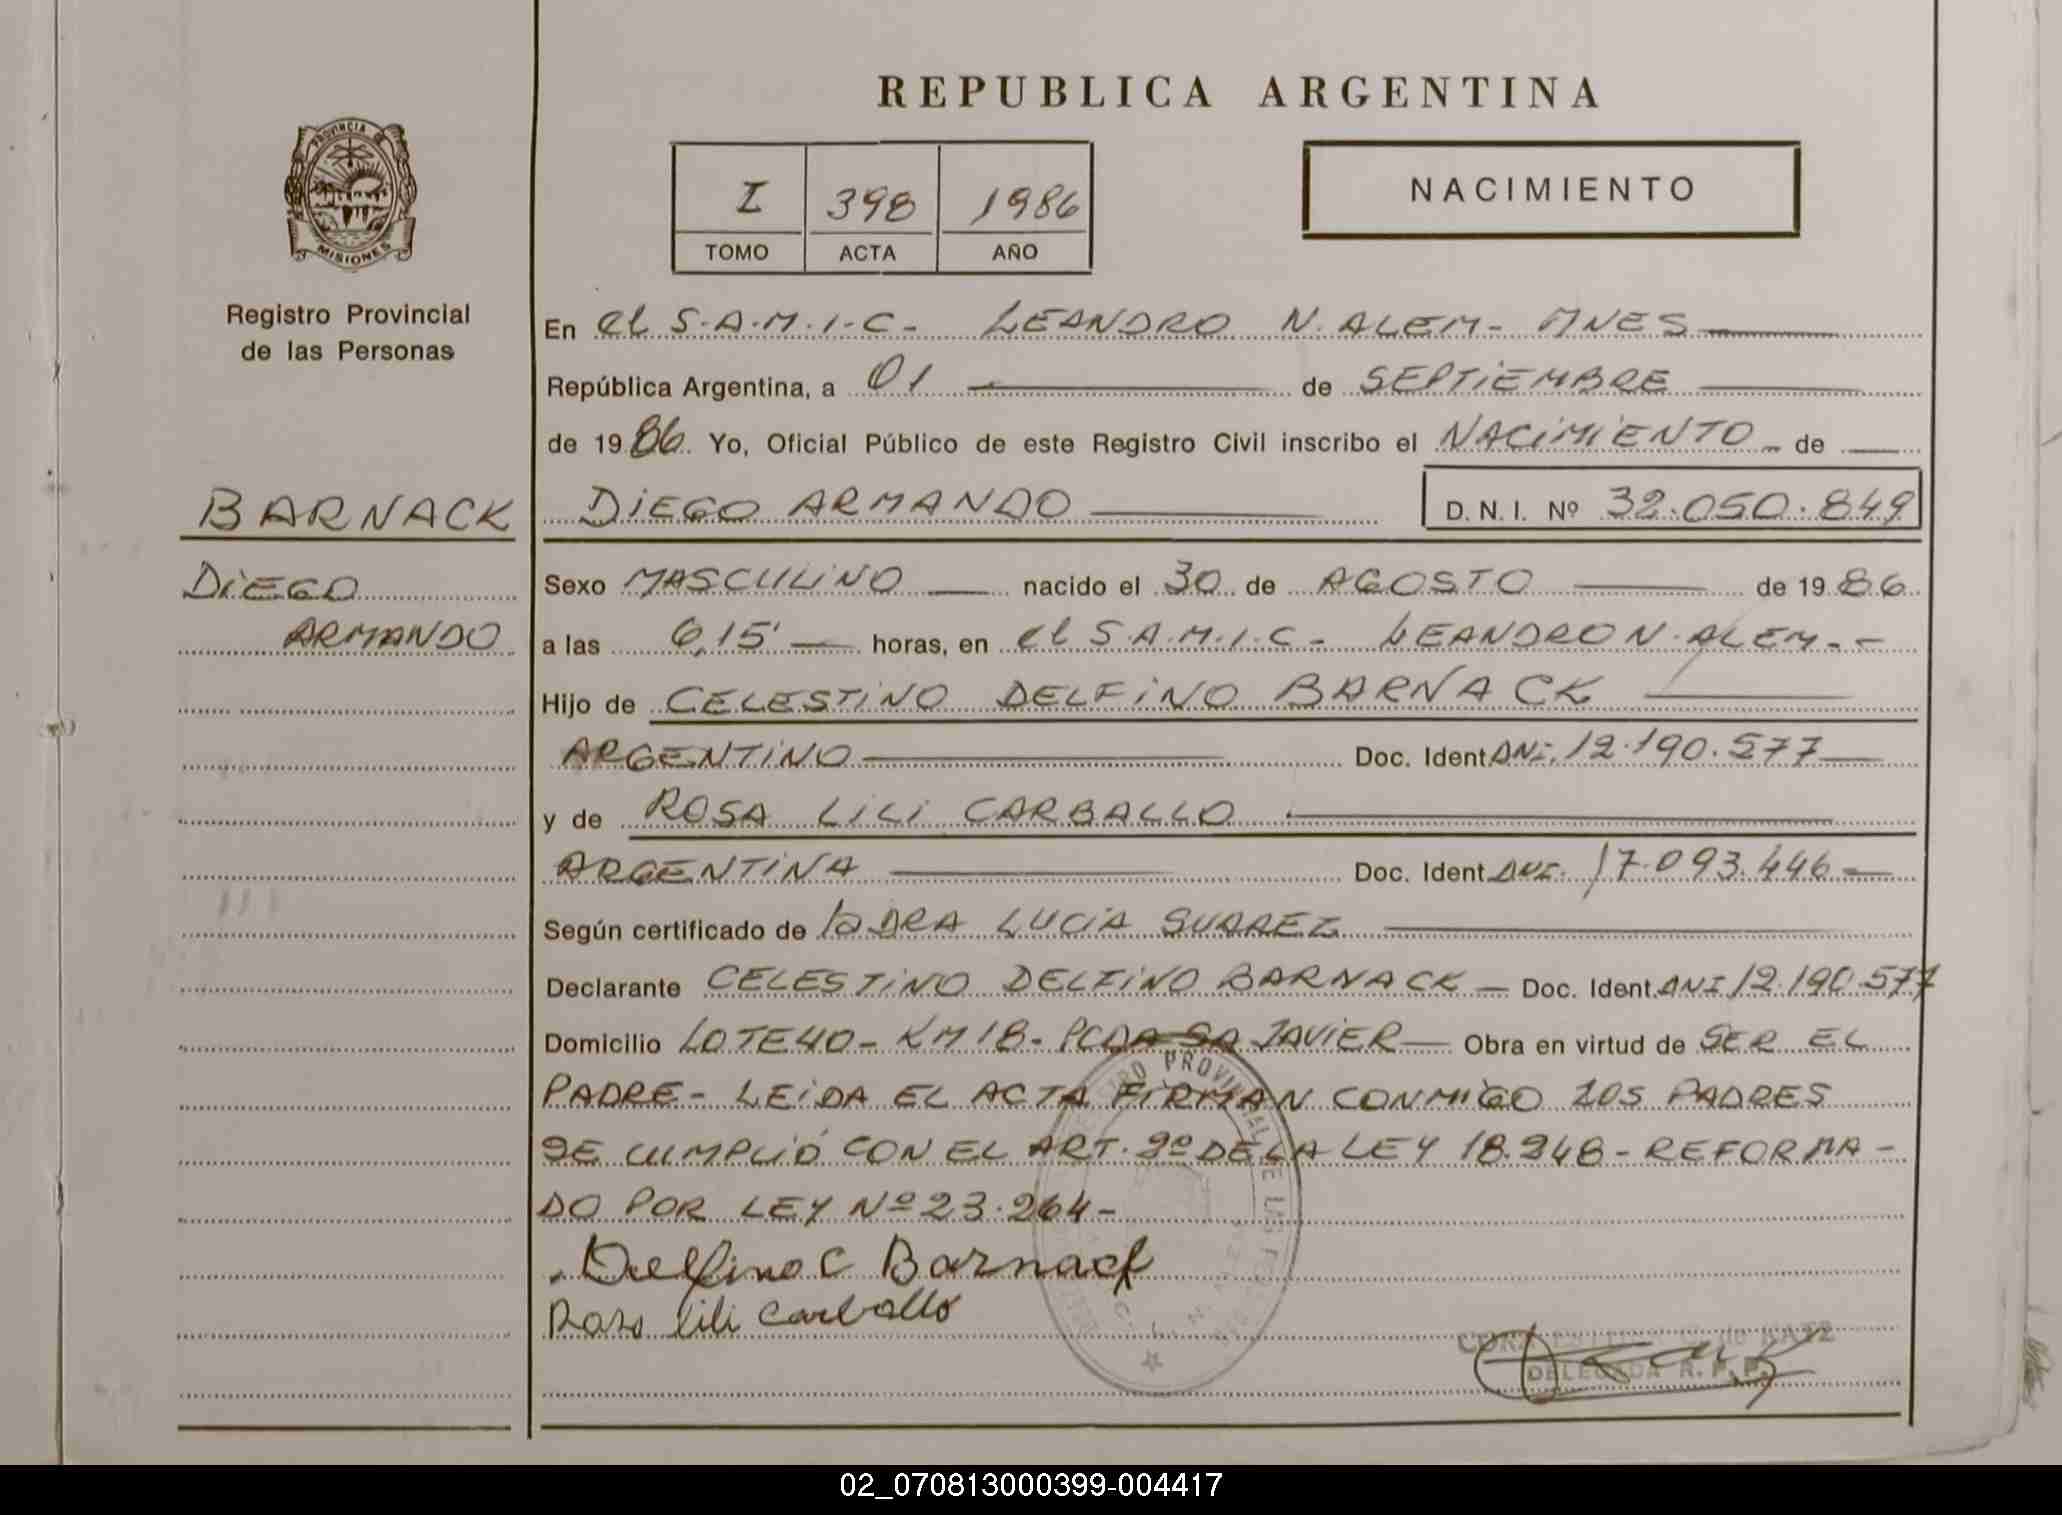 REPUBLICA ARGENTINA
PROVINCIA DE
MISIONES
Registro Provincial
de las Personas
I 398 1986
TOMO ACTA AÑO
NACIMIENTO
En el S.A.M.I.C- LEANDRO N. ALEM- MNES
República Argentina, a 01 de SEPTIEMBRE
de 1986. Yo, Oficial Público de este Registro Civil inscribo el NACIMIENTO - de
BARNACK DIEGO ARMANDO D. N. I. Nº 32.050.849
DIEGO Sexo MASCULINO nacido el 30 de AGOSTO de 1986
ARMANDO a las 6,15' horas, en el S.A.M.I.C- LEANDRO N. ALEM--
Hijo de CELESTINO DELFINO BARNACK
ARGENTINO Doc. Ident. DNI. 12.190.577
y de ROSA LILI CARBALLO
ARGENTINA Doc. Ident. DNI. 17.093.446
Según certificado de la DRA LUCIA SUAREZ
Declarante CELESTINO DELFINO BARNACK - Doc. Ident. DNI 12.190.577
Domicilio LOTE 40- KM 18- PCDA SA JAVIER Obra en virtud de SER EL
PADRE- LEIDA EL ACTA FIRMAN CONMIGO LOS PADRES
SE CUMPLIÓ CON EL ART. 2º DE LA LEY 18.248- REFORMA-
DO POR LEY Nº 23.264-
Delfino C Barnack
Rosa lili Carballo
REGISTRO PROVINCIAL DE LAS
KATZ
DELEGADA R. P. P.
02_070813000399-004417